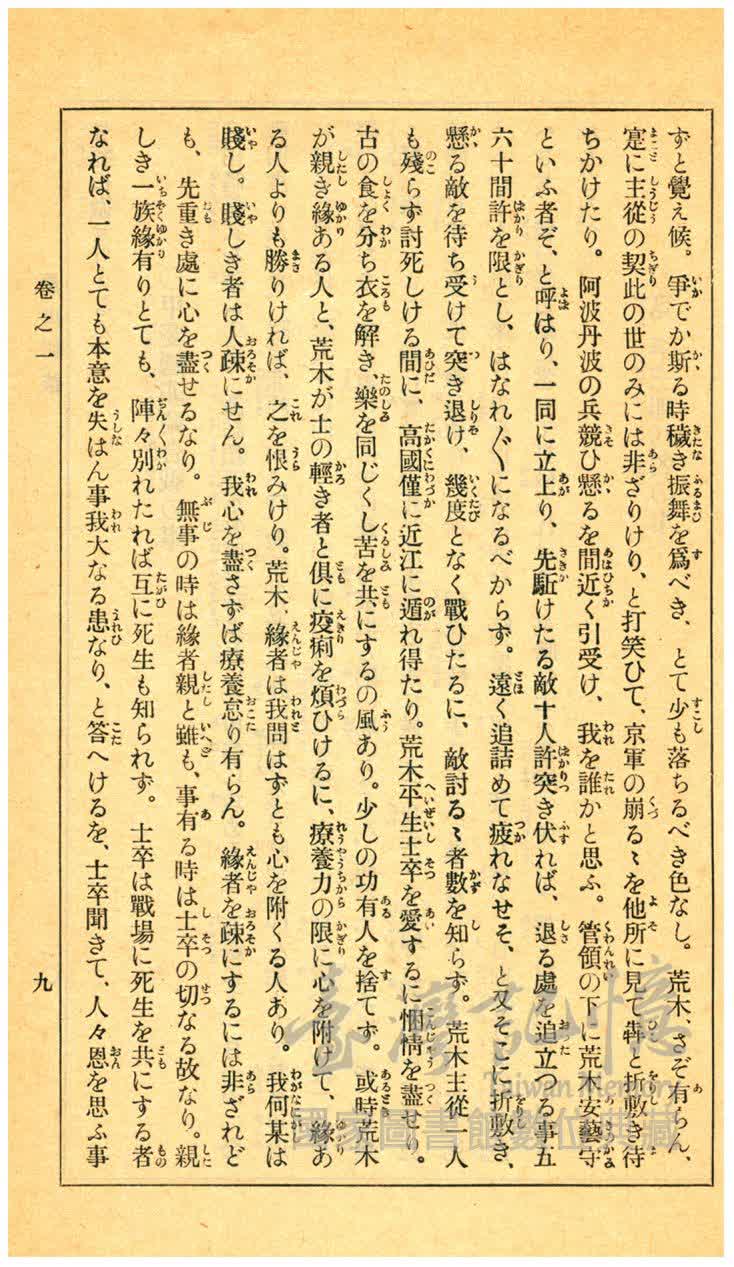 ずと覺え候。爭でか斯る時穢き振舞を爲べき、とて少も落ちるべき色なし。荒木、さぞ有らん、
寔に主從の契此の世のみには非ざりけり、と打笑ひて、京軍の崩るゝを他所に見て犇と折敷き待
ちかけたり。阿波丹波の兵競ひ懸るを間近く引受け、我を誰かと思ふ。管領の下に荒木安藝守
といふ者ぞ、と呼はり、一同に立上り、先駈けたる敵十人許突き伏れば、退る處を追立つる事五
六十間許を限とし、はなれ〴〵になるべからず。遠く追詰めて疲れなせそ、と又そこに折敷き、
懸る敵を待ち受けて突き退け、幾度となく戰ひたるに、敵討るゝ者數を知らず。荒木主從一人
も殘らず討死しける間に、高國僅に近江に遁れ得たり。荒木平生士卒を愛するに悃情を盡せり。
古の食を分ち衣を解き、樂を同じくし苦を共にするの風あり。少しの功有人を捨てず。或時荒木
が親き緣ある人と、荒木が士の輕き者と俱に疫痢を煩ひけるに、療養力の限に心を附けて、緣あ
る人よりも勝りければ、之を恨みけり。荒木、緣者は我問はずとも心を附くる人あり。我何某は
賤し。賤しき者は人疎にせん。我心を盡さずば療養怠り有らん。緣者を疎にするには非ざれど
も、先重き處に心を盡せるなり。無事の時は緣者親と雖も、事有る時は士卒の切なる故なり。親
しき一族緣有りとても、陣々別れたれば互に死生も知られず。士卒は戰場に死生を共にする者
なれば、一人とても本意を失はん事我大なる患なり、と答へけるを、士卒聞きて、人々恩を思ふ事
卷之一
九
臺灣記憶
Taiwan Memory
國家圖書館數位典藏